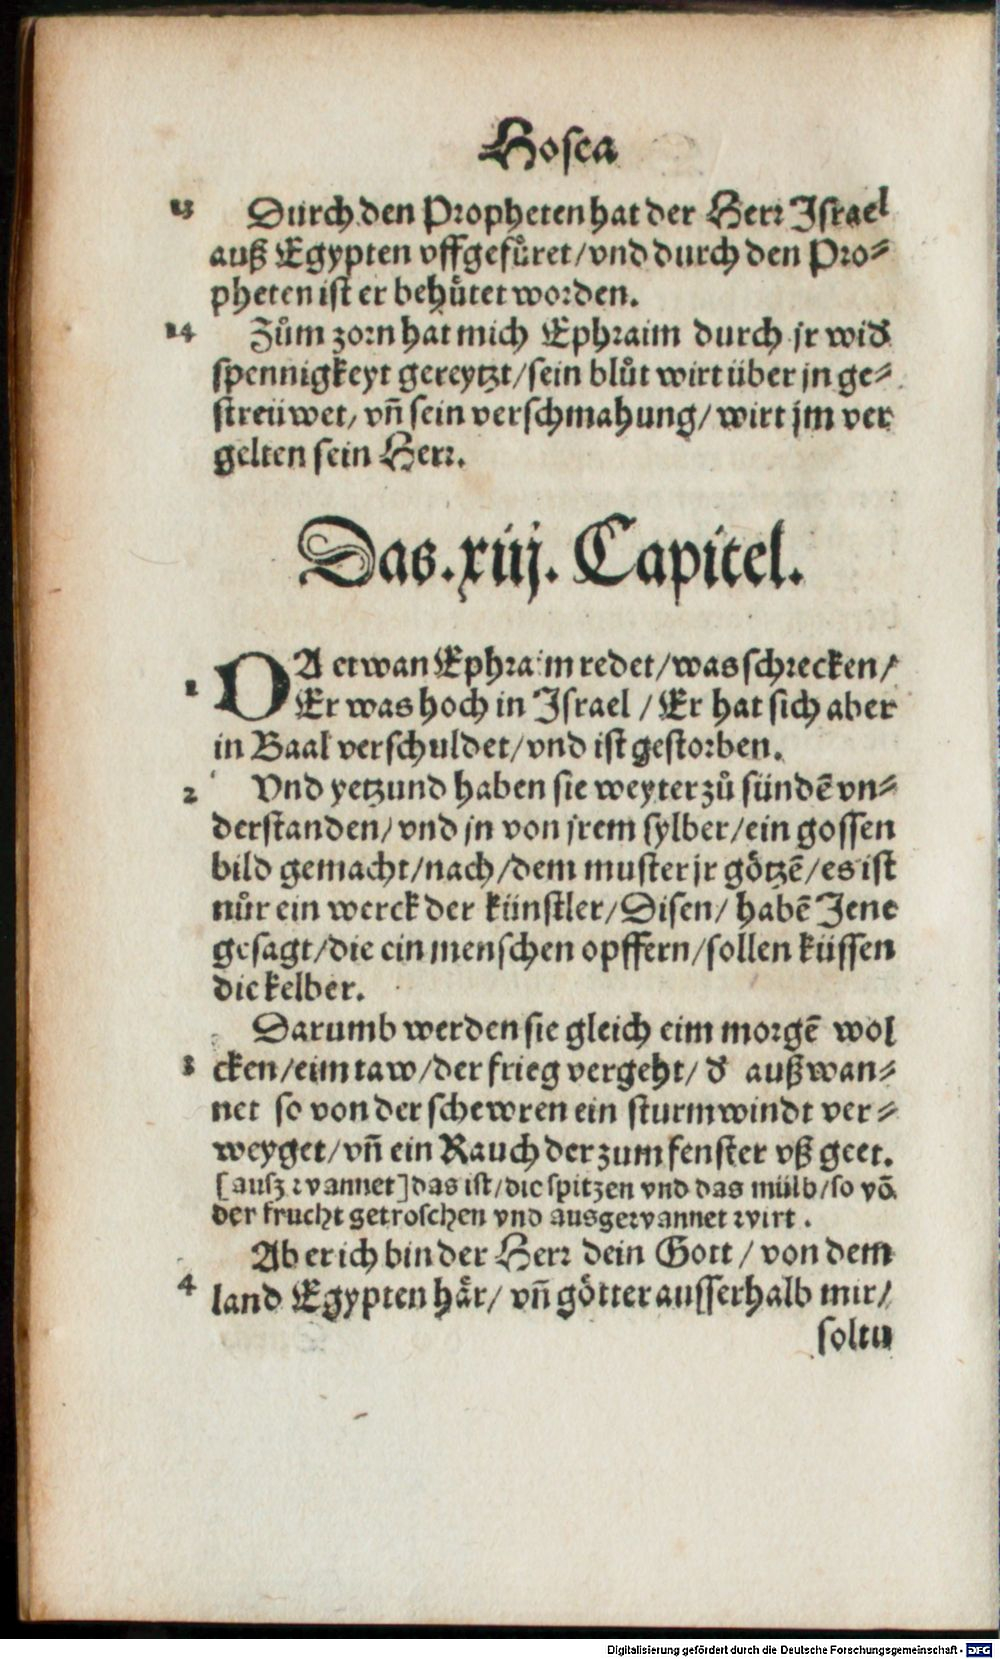 Hosea
13 Durch den Propheten hat der Herr Israel
auß Egypten vffgefuͤret/vnd durch den Pro⸗
pheten ist er behuͤtet worden.
14 Zuͦm zorn hat mich Ephraim durch jr wid̕
spennigkeyt gereytzt/sein bluͦt wirt über jn ge⸗
streüwet, vn̄ sein verschmahung/wirt jm ver
gelten sein Herr.
Das .xiij. Capitel.
DA etwan Ephraim redet/was schrecken/
1 Er was hoch in Israel / Er hat sich aber
in Baal verschuldet/vnd ist gestorben.
2 Vnd yetzund haben sie weyter zuͦ sündē vn⸗
derstanden/vnd jn von jrem sylber/ein gossen
bild gemacht/nach/dem muster jr goͤtzē/es ist
nuͦr ein werck der künstler/Disen/ habē Jene
gesagt/die ein menschen opffern/sollen küssen
die kelber.
Darumb werden sie gleich eim morgē wol
3 cken/eim taw/der frieg vergeht/ d̕ außwan⸗
net so von der schewren ein sturmwindt ver⸗
weyget/vn̄ ein Rauch der zum fenster vß geet.
[ausz wannet] das ist/die spitzen vnd das mülb/so vō
der frucht getroschen vnd ausgewannet wirt .
Aber ich bin der Herr dein Gott / von dem
4 land Egypten haͤr/ vn̄ goͤtter ausserhalb mir/
soltu
Digitalisierung gefördert durch die Deutsche Forschungsgemeinschaft - DFG